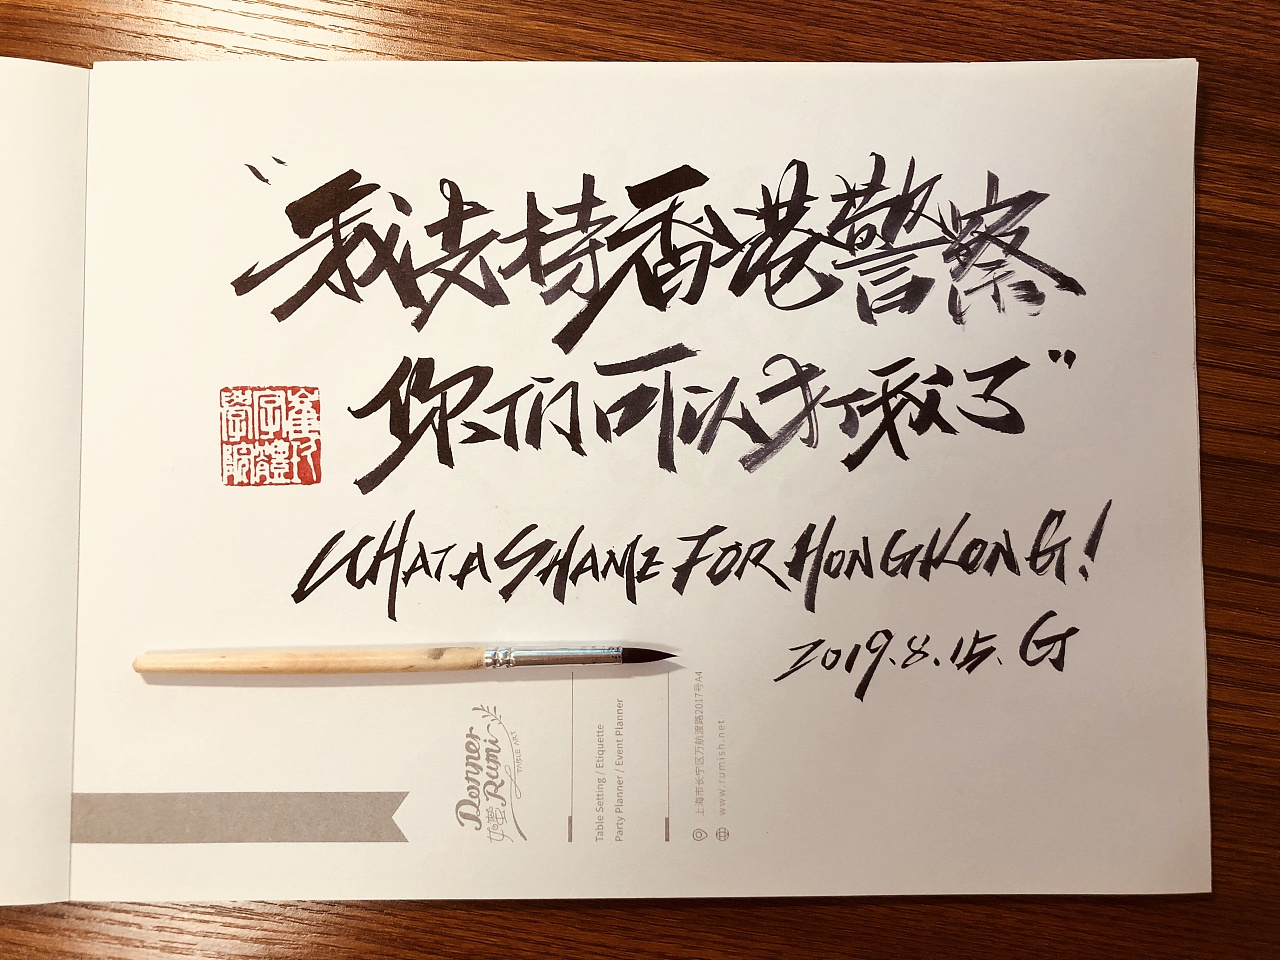 “我支持香港警察
你们可以打我了”
WHAT A SHAME FOR HONGKONG!
2019.8.15. G
崔巧
字體
學院
Donner
Rumi
如夢
TABLE ART
Table Setting / Etiquette
Party Planner / Event Planner
上海市长宁区万航渡路2017号A4
www.rumish.net